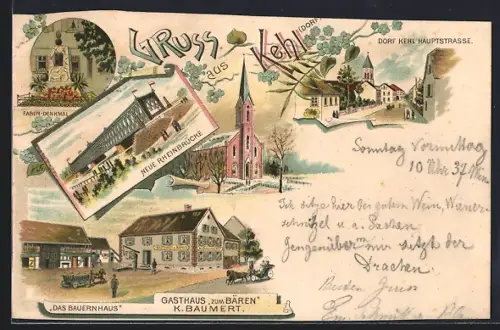 GRUSS
aus
Kehl
(DORF
DORF KEHL HAUPTSTRASSE.
FABER-DENKMAL
NEUE RHEINBRÜCKE
Sonntag Vormittag
10 Uhr 37
Ich sitze hier bei gutem Wein, Wiener-
schnitzel u. a. Sachen
Gegenüber mir sitzt der
Drachen
"DAS BAUERNHAUS"
GASTHAUS „ZUM BÄREN"
K. BAUMERT.